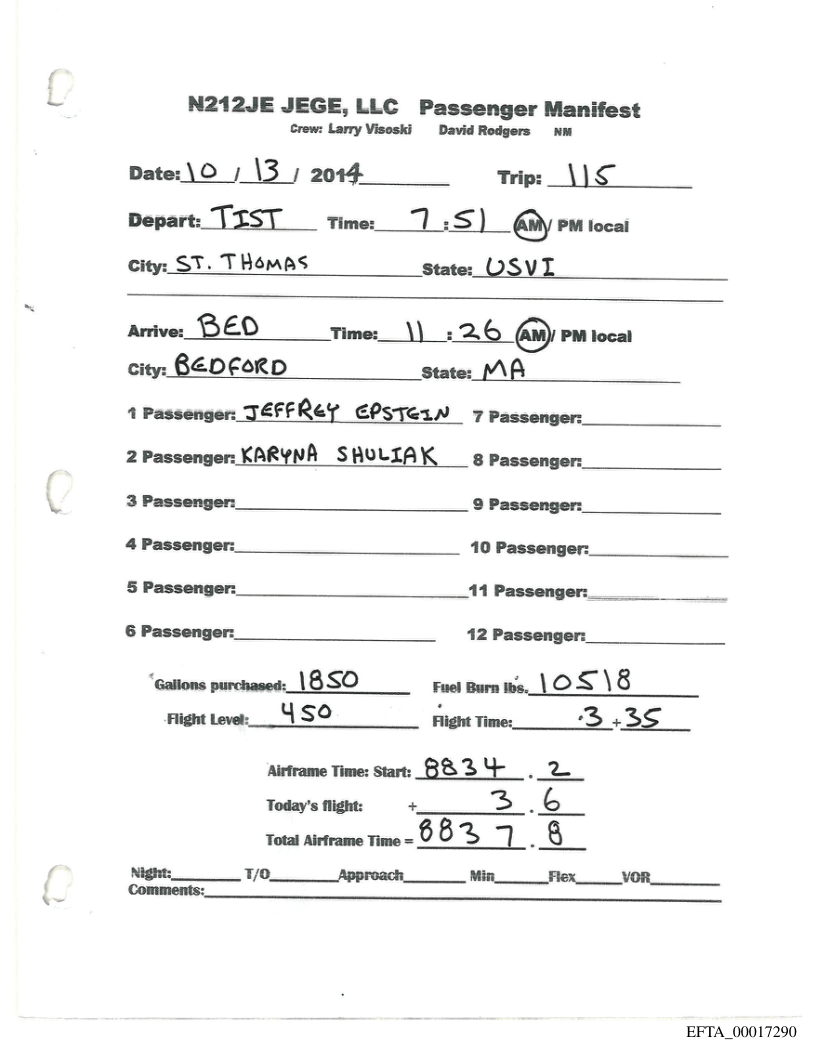 N212JE JEGE, LLC Passenger Manifest
Crew: Larry Visoski David Rodgers NM
Date: 10 / 13 / 2014 Trip: 115
Depart: TIST Time: 7 : 51 AM/ PM local
City: ST. THOMAS State: USVI
Arrive: BED Time: 11 : 26 AM/ PM local
City: BEDFORD State: MA
1 Passenger: JEFFREY EPSTEIN 7 Passenger:
2 Passenger: KARYNA SHULIAK 8 Passenger:
3 Passenger: 9 Passenger:
4 Passenger: 10 Passenger:
5 Passenger: 11 Passenger:
6 Passenger: 12 Passenger:
Gallons purchased: 1850 Fuel Burn lbs. 10518
Flight Level: 450 Flight Time: 3 + 35
Airframe Time: Start: 8834 . 2
Today's flight: + 3 . 6
Total Airframe Time = 8837 . 8
Night: T/O Approach Min Flex VOR
Comments:
EFTA_00017290